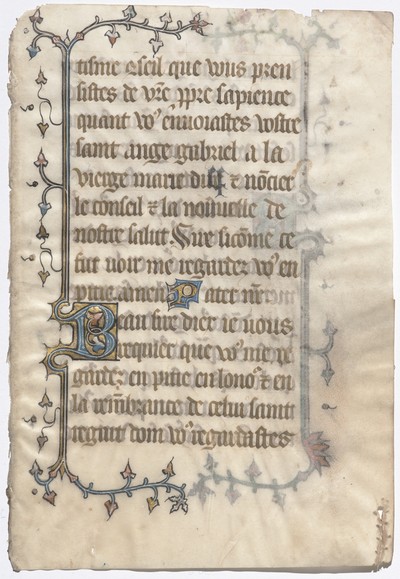 tisme cōseil que vous pren
sistes de vr̄e ppre sapience
quant vo9 enuoiastes vostre
saint ange gabriel a la
vierge marie dire ⁊ nōcier
le conseil ⁊ la nouuelle de
nostre salut. Sire sicōme ce
fut voir me regardez vo9 en
pitie amen Pater nr̄
Beau sire dieu ie vous
requier que vo9 me re
gardez en pitie en lonor ⁊ en
la remēbrance de celui saint
regart com vo9 regardastes